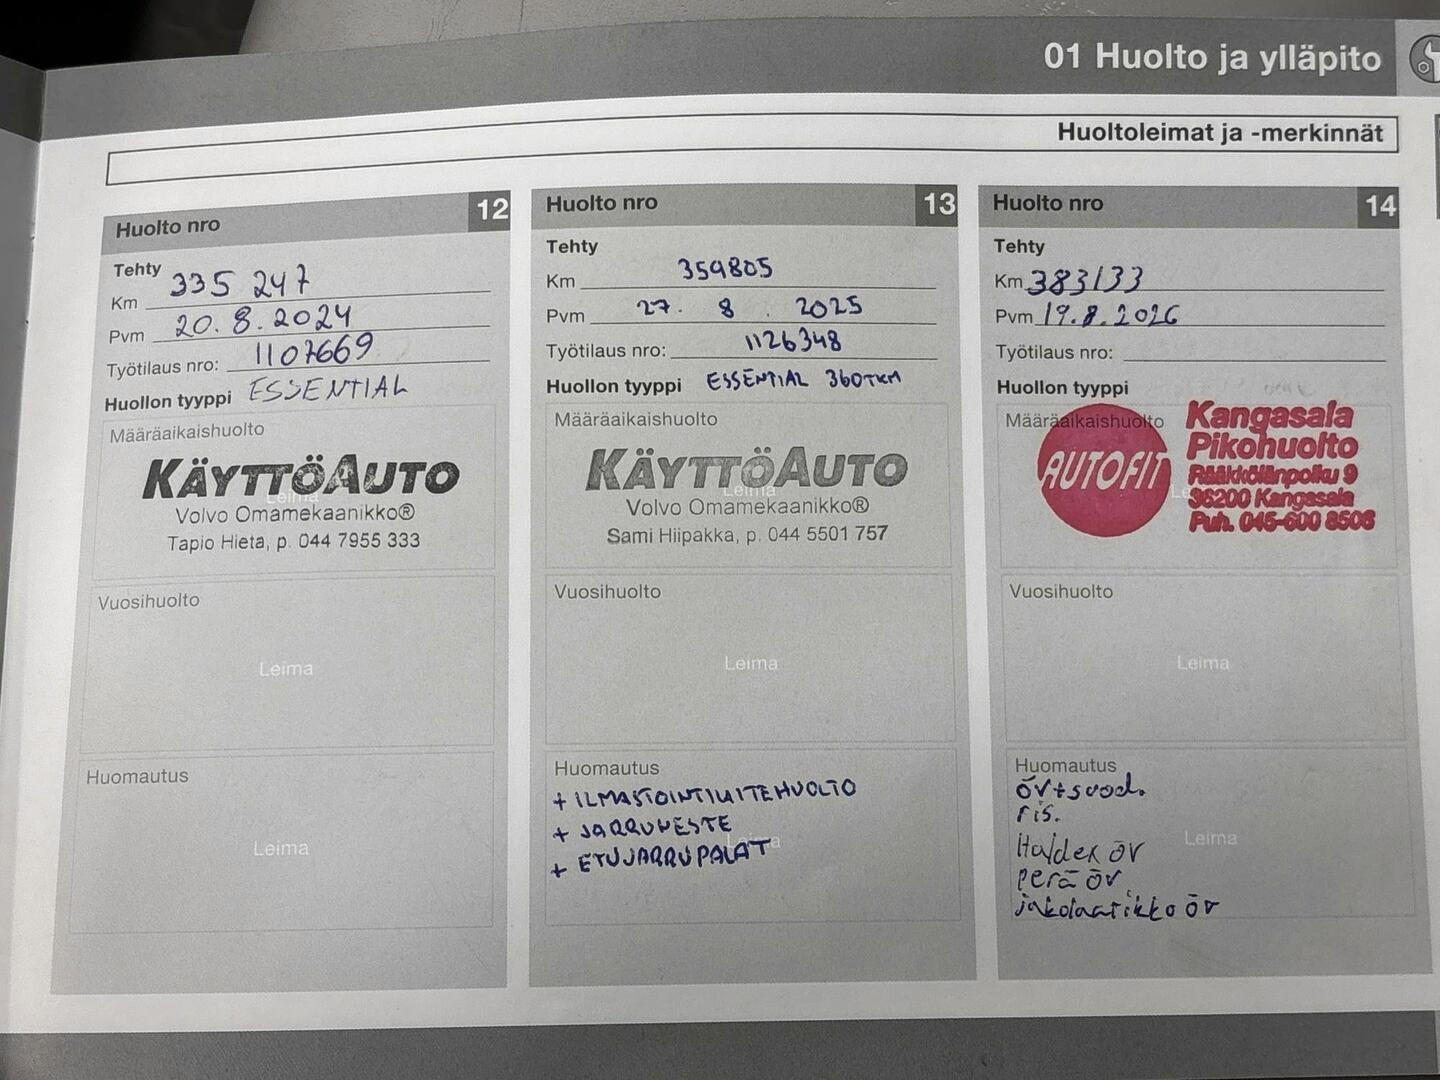 01 Huolto ja ylläpito
Huoltoleimat ja -merkinnät
Huolto nro 12
Tehty
Km 335 247
Pvm 20.8.2024
Työtilaus nro: 1107669
Huollon tyyppi ESSENTIAL
Määräaikaishuolto
KÄYTTÖAUTO
Leima
Volvo Omamekaanikko®
Tapio Hieta, p. 044 7955 333
Vuosihuolto
Leima
Huomautus
Leima
Huolto nro 13
Tehty
Km 359805
Pvm 27. 8. 2025
Työtilaus nro: 1126348
Huollon tyyppi ESSENTIAL 360TKM
Määräaikaishuolto
KÄYTTÖAUTO
Leima
Volvo Omamekaanikko®
Sami Hiipakka, p. 044 5501 757
Vuosihuolto
Leima
Huomautus
+ ILMASTOINTILAITEHUOLTO
+ JARRUNESTE
+ ETUJARRUPALAT
Huolto nro 14
Tehty
Km 383133
Pvm 19.8.2026
Työtilaus nro:
Huollon tyyppi
Määräaikaishuolto
AUTOFIT
Kangasala
Pikohuolto
Rääkkölänpolku 9
36200 Kangasala
Puh. 045-600 8506
Vuosihuolto
Leima
Huomautus
öv+suod.
ris.
Leima
Haldex öv
perä öv
jakolaatikko öv